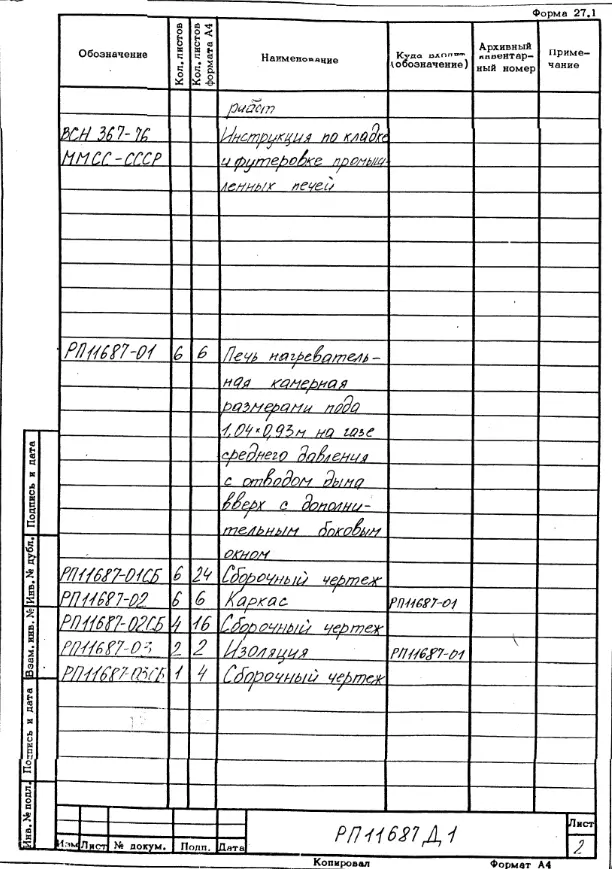 Форма 27.1
Обозначение Кол. листов Кол. листов формата А4 Наименование Куда входит (обозначение) Архивный инвентарный номер Примечание
риаст
ВСН 367-76 Инструкция по кладке
ММСС-СССР и футеровке промыш-
ленных печей
РП11687-01 6 6 Печь нагреватель-
ная камерная
размерами пода
1,04×0,93м на газе
среднего давления
с отводом дыма
вверх с дополни-
тельным боковым
окном
РП11687-01СБ 6 24 Сборочный чертеж
РП11687-02 6 6 Каркас РП11687-01
РП11687-02СБ 4 16 Сборочный чертеж
РП11687-03 2 2 Изоляция РП11687-01
РП11687-03СБ 1 4 Сборочный чертеж
Инв. № подл. Подпись и дата Взам. инв. № Инв. № дубл. Подпись и дата
Изм Лист № докум. Подп. Дата
РП11687Д1
Лист
2
Копировал Формат А4